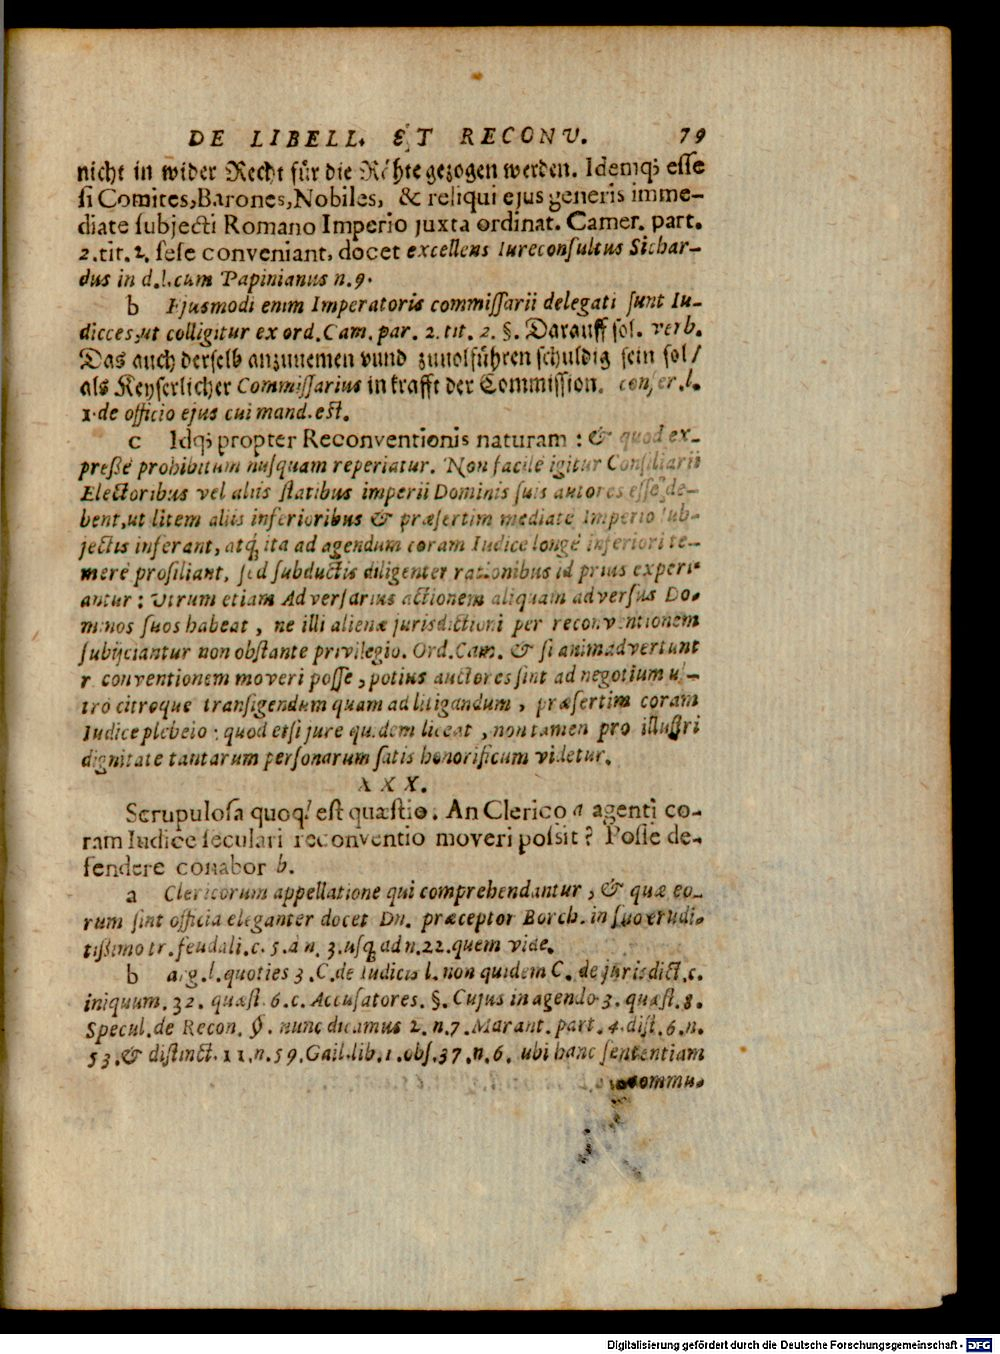 DE LIBELL. ET RECONV. 79
nicht in wider Recht für die Räthe gezogen werden. Idemq; esse
si Comites, Barones, Nobiles, & reliqui ejus generis imme-
diate subjecti Romano Imperio juxta ordinat. Camer. part.
2. tit. 2. sese conveniant, docet excellens Iureconsultus Sichar-
dus in d. l. cum Papinianus n. 9.
b Ejusmodi enim Imperatoris commissarii delegati sunt Iu-
dicces, ut colligitur ex ord. Cam. par. 2. tit. 2. §. Darauff sol. verb.
Das auch derselb anzunemen vund zuuolführen schuldig sein sol/
als Keyserlicher Commissarius in krafft der Commission. confer. l.
1. de officio ejus cui mand. est.
c Idq; propter Reconventionis naturam: & quod ex-
presse prohibitum nusquam reperiatur. Non facile igitur Consiliarii
Electoribus vel aliis statibus imperii Dominis suis autores esse de-
bent, ut litem aliis inferioribus & præsertim mediate Imperio sub-
jectis inferant, atq; ita ad agendum coram Iudice longè inferiori te-
merè prosiliant, sed subductis diligenter rationibus id prius experi-
antur: Utrum etiam Adversarius actionem aliquam adversus Do-
minos suos habeat, ne illi alienæ jurisdictioni per reconventionem
subijciantur non obstante privilegio. Ord. Cam. & si animadvertunt
reconventionem moveri posse, potius auctores sint ad negotium ul-
tro citroque transigendum quam ad litigandum, præsertim coram
Iudice plebeio: quod etsi jure quidem liceat, non tamen pro illustri
dignitate tantarum personarum satis honorificum videtur.
XXX.
Scrupulosa quoq; est quæstio. An Clerico a agenti co-
ram Iudice seculari reconventio moveri possit? Posse de-
fendere conabor b.
a Clericorum appellatione qui comprehendantur, & quæ eo-
rum sint officia eleganter docet Dn. præceptor Borch. in suo erudi-
tissimo tr. feudali. c. 5. à n. 3. usq; ad n. 22. quem vide.
b arg. l. quoties 3. C. de Iudiciis l. non quidem C. de jurisdict. c.
iniquum. 32. quæst. 6. c. Accusatores. §. Cujus in agendo 3. quæst. 8.
Specul. de Recon. §. nunc dicamus 2. n. 7. Marant. part. 4. dist. 6. n.
53. & distinct. 11. n. 59. Gail. lib. 1. obs. 37. n. 6. ubi hanc sententiam
commu-
Digitalisierung gefördert durch die Deutsche Forschungsgemeinschaft - DFG